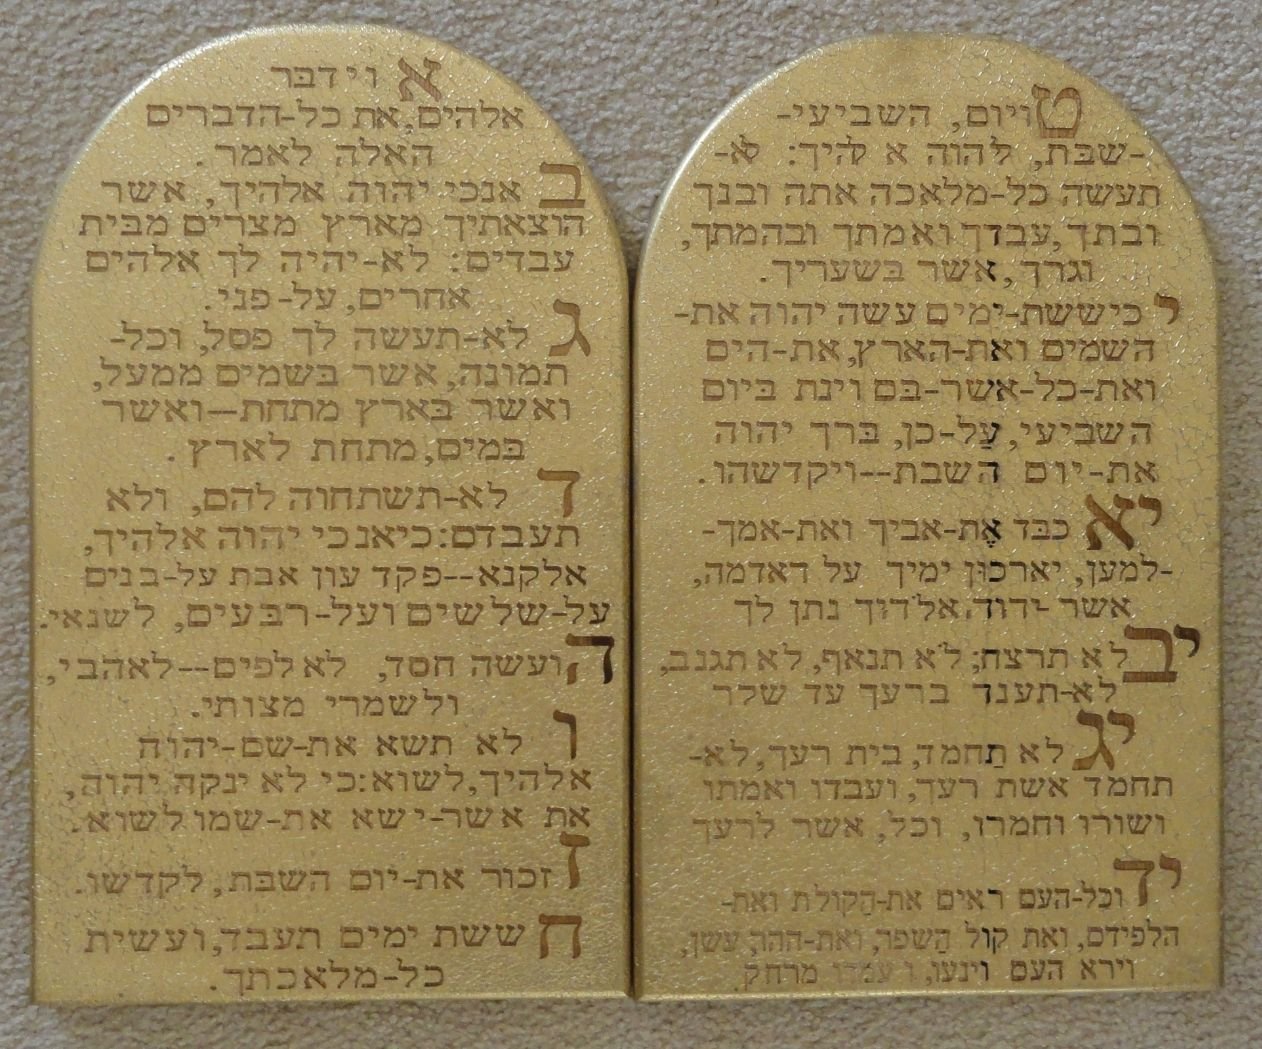 א וידבר
אלהים, את כל-הדברים
האלה לאמר.
ב אנכי יהוה אלהיך, אשר
הוצאתיך מארץ מצרים מבית
עבדים: לא-יהיה לך אלהים
אחרים, על-פני.
ג לא-תעשה לך פסל, וכל-
תמונה, אשר בשמים ממעל,
ואשר בארץ מתחת--ואשר
במים, מתחת לארץ.
ד לא-תשתחוה להם, ולא
תעבדם: כיאנכי יהוה אלהיך,
אלקנא--פקד עון אבת על-בנים
על-שלשים ועל-רבעים, לשנאי.
ה ועשה חסד, לאלפים--לאהבי,
ולשמרי מצותי.
ו לא תשא את-שם-יהוה
אלהיך, לשוא: כי לא ינקה יהוה,
את אשר-ישא את-שמו לשוא.
ז זכור את-יום השבת, לקדשו.
ח ששת ימים תעבד, ועשית
כל-מלאכתך.
ט ויום, השביעי-
-שבת, להוה א להיך: לא-
תעשה כל-מלאכה אתה ובנך
ובתך, עבדך ואמתך ובהמתך,
וגרך, אשר בשעריך.
י כיששת-ימים עשה יהוה את-
השמים ואת-הארץ, את-הים
ואת-כל-אשר-בם וינת ביום
השביעי, על-כן, ברך יהוה
את-יום השבת--ויקדשהו.
יא כבד את-אביך ואת-אמך-
-למען, יארכון ימיך על האדמה,
אשר-יהוה אלהיך נתן לך
יב לא תרצח; לא תנאף, לא תגנב,
לא-תענד ברעך עד שלר
יג לא תחמד, בית רעך, לא-
תחמד אשת רעך, ועבדו ואמתו
ושורו וחמרו, וכל, אשר לרעך
יד וכל-העם ראים את-הקולת ואת-
הלפידם, ואת קול השפר, ואת-ההר, עשן,
וירא העם וינעו, ועמדו מרחק.